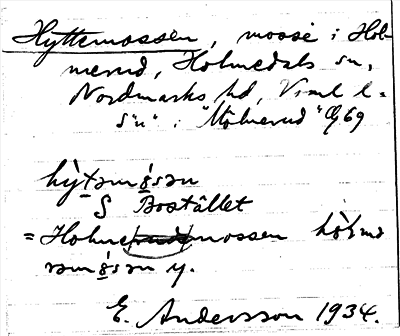 Hyttemossen, mosse i Hol-
merud, Holmedals sn,
Nordmarks hd, Vrml l.
S "u" i "Holmerud" Gj 69
hỳtəmɷ̀sən
§ Bostället
= Holmemossen hòlmə
mɷ̀sən y.
E. Andersson 1934.